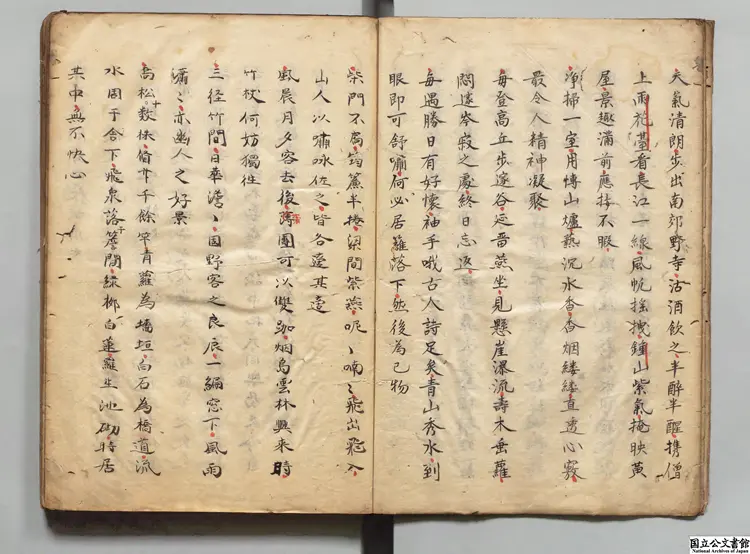 天氣清朗步出南郊野寺沽酒飲之半醉半醒携僧
上雨花臺看長江一線風帆搖拽鍾山紫氣掩映黄
屋景趣滿前應接不暇
淨掃一室用博山爐爇沉水香香烟縷縷直透心竅
最令人精神凝聚
每登高丘步邃谷延留燕坐見懸崖瀑流壽木垂蘿
閟邃岑寂之處終日忘返
每遇勝日有好懷袖手哦古人詩足矣青山秀水到
眼即可舒嘯何必居籬落下然後為己物
柴門不扃筠簾半捲梁間紫燕呢〻喃〻飛出飛入
山人以嘯咏佐之皆各適其適
風晨月夕客去後蒲團可以雙跏烟島雲林興來時
竹杖何妨獨往
三径竹間日華澹〻固野客之良辰一編窓下風雨
瀟〻亦幽人之好景
喬松十數株脩竹千餘竿青蘿為墻垣白石為橋道流
水周于舎下飛泉落于簷間緑柳白蓮羅生池砌時居
其中無不快心
国立公文書館
National Archives of Japan